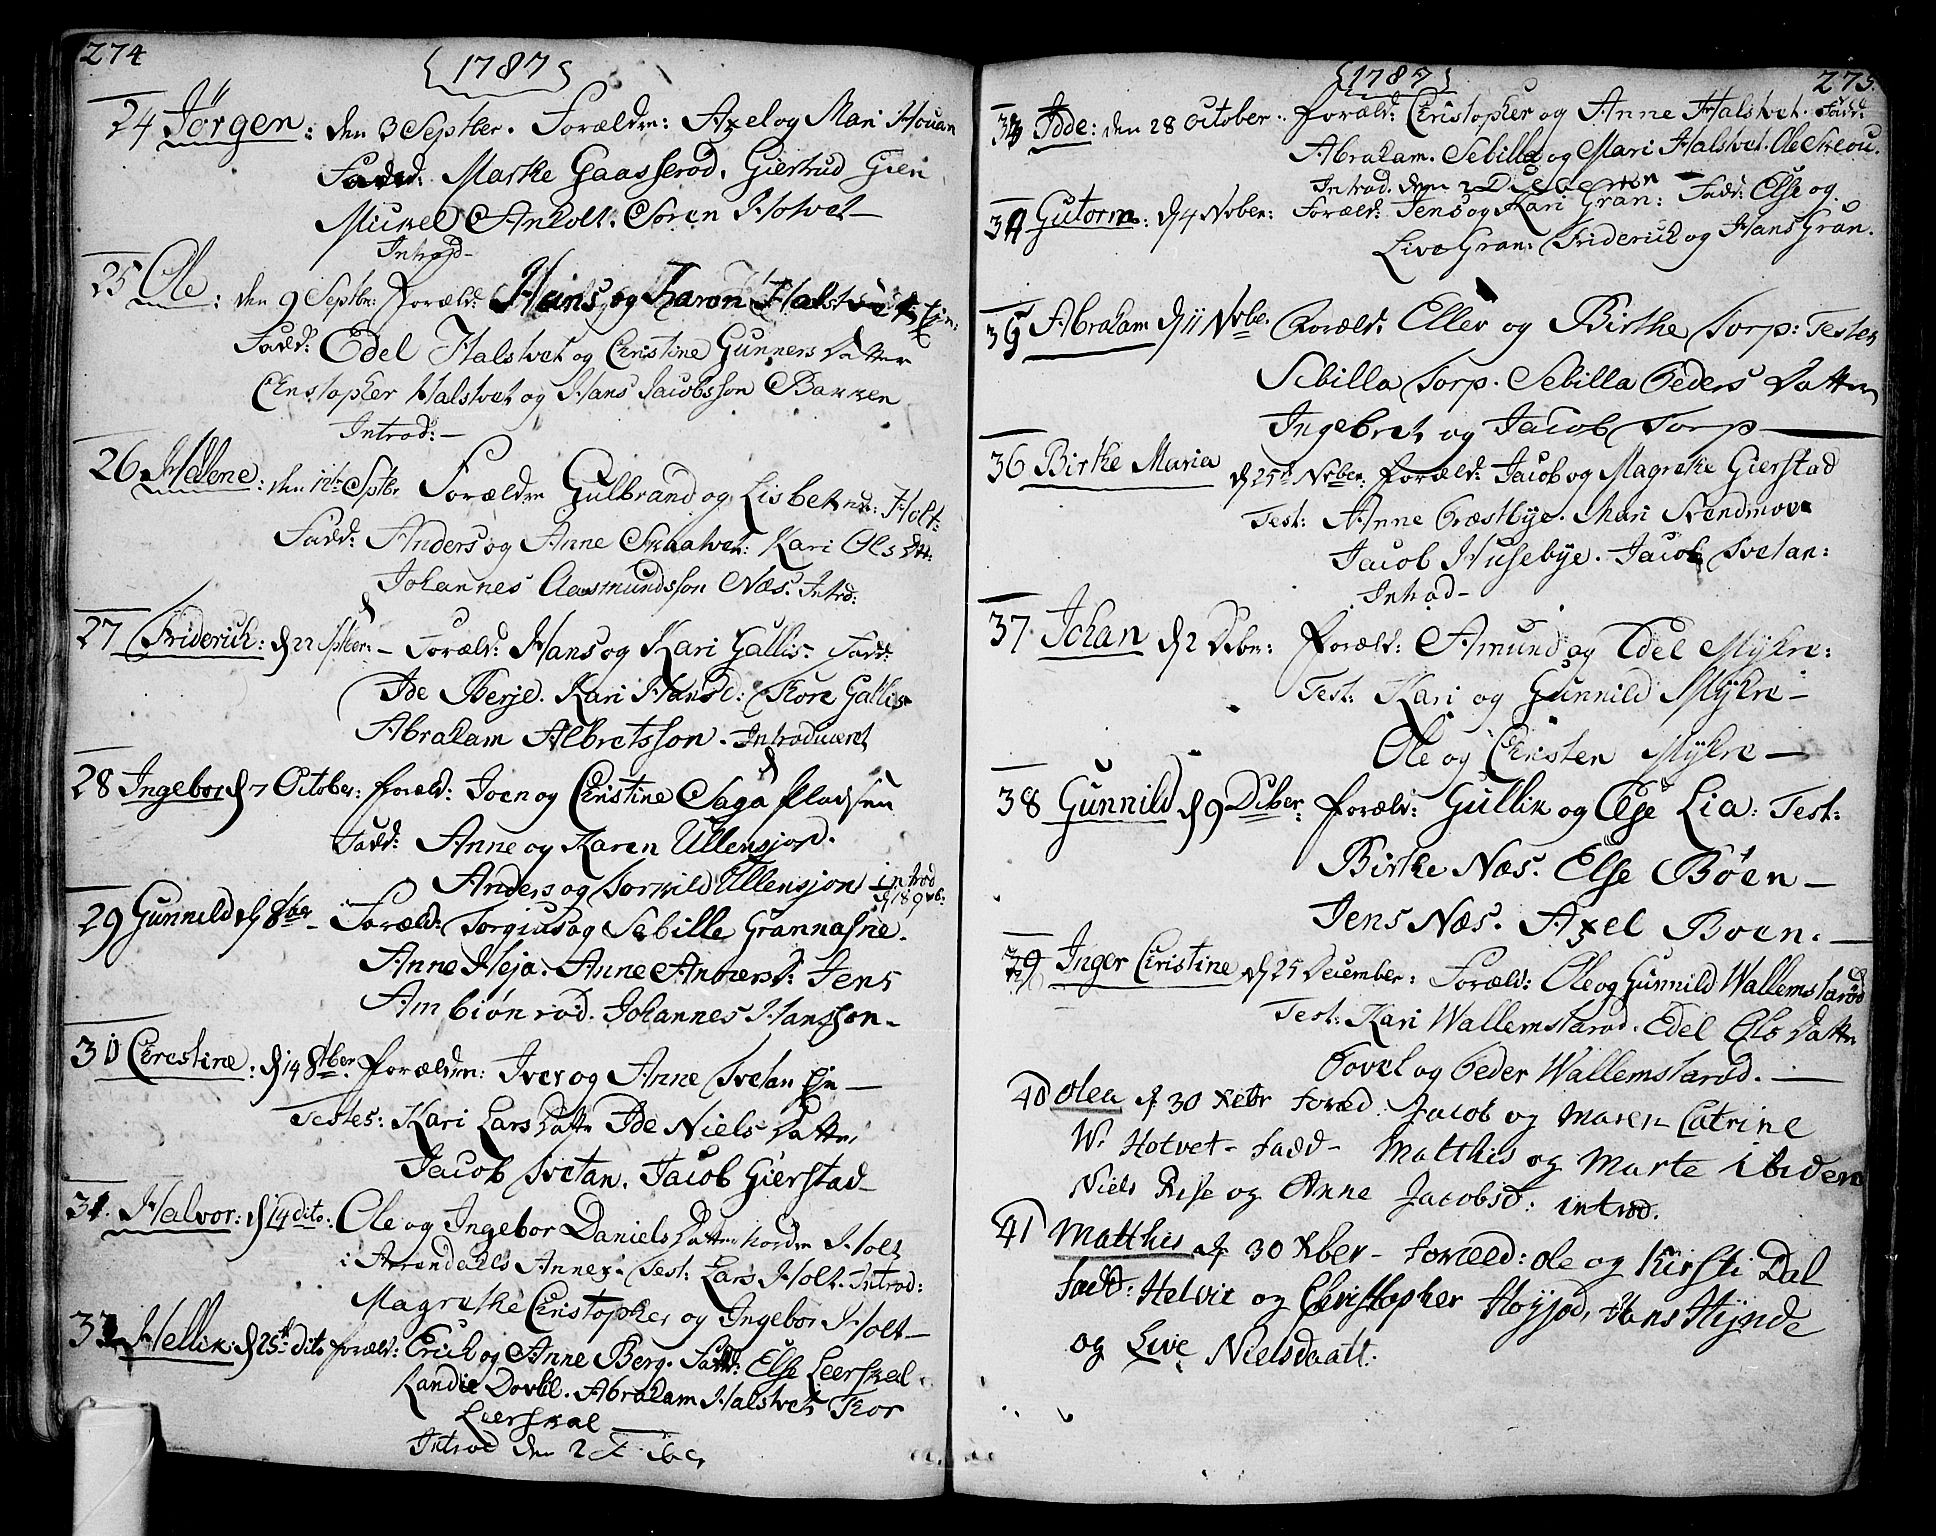 274
1787
24 Jørgen: den 3 Septber. Forældre: Axel og Mari Houan
Fadd: Marthe Gaasserød. Giertrud Gien
Mickel Anholt. Søren Hotvet
Introd
25 Ole: den 9 Septbr: Foræld: Hans og Karen Halstvet Eje:
Fadd: Edel Halstvet og Christine Gunners Datter
Christopher Halstvet og Hans Jacobsson Bakken
Introd:
26 Helene: den 12te Sptbr Forældre Gulbrand og Lisbeth Holt:
Fadd: Anders og Anne Skaatvet: Kari Ols Dtt:
Johannes Aasmundsson Næs. Introd:
27 Friderich: d 22 Sptber: Foræld: Hans og Kari Gallis: Fadd:
Ide Berje. Kari Hansd: Thore Gallis
Abraham Albretsson. Introduceret
28 Ingebor d 7 October: Foræld: Joen og Christine Saga Pladsen
Fadd: Anne og Karen Ullensjord.
Anders og Torkild Ullensjon introd
d 18 9vb:
29 Gunnild d 8ber Foræld: Torgius og Sebille Grannasne.
Anne Heja. Anne Andersd: Jens
Ambiønrød. Johannes Hansson
30 Christine: d 14 8tber. Forældre: Iver og Anne Tvetan Eje
Testes: Kari Lars Datt Ide Niels Datter
Jacob Tvetan. Jacob Gierstad
31. Halvor: d 14 dito: Ole og Ingebor Daniels Datter Nordre Holt
i Arrendahls Annex. Test: Lars Holt. Introd:
Magrethe Christopher og Ingebor Holt
32 Hellik: d 25th dito Foræld: Erich og Anne Berg. Fadd: Else Leerskal
Randie Dovlil. Abraham Halstvet Thor
Leerskal
Introd den 2
1787
275
33 Idde: den 28 October. Foræld: Christopher og Anne Halstvet. Fadd:
Abraham. Sebilla og Mari Halstvet. Ole Skou.
Introd. den 2 Decbr
34 Gutorm: d 4 Nvber: Foræld: Jens og Kari Gran: Fadd: Else og
Live Gran: Friderich og Hans Gran.
35 Abraham d 11 Nvbe. Foræld: Ellev og Birthe Torp: Testes
Sebilla Torp. Sebilla Peders Datter
Ingebret og Jacob Torp
36 Birthe Maria d 25th Nvber: Foræld: Jacob og Magrethe Gierstad
Test: Anne Præstbye. Mari Svendmoe
Jacob Husebye. Jacob Tvetan:
Introd
37. Johan d 2 Debr: Foræld: Amund og Edel Mykre:
Test: Kari og Gunnild Mykre
Ole og Christen Mykre
38 Gunnild d 9 Dcber: Foræld: Gullik og Else Lia: Test:
Birthe Næs. Else Bøen
Jens Næs. Axel Boen.
39 Inger Christine d 25 December: Foræld: Ole og Gunnild Wallemstarød
Test: Kari Wallemstarød. Edel Ols Datter
Povel og Peder Wallemstarød.
40 Olea d 30 Xebr Foræd. Jacob og Maren Catrine
W. Hotvet Fadd Matthis og Marte ibidem
Niels Rise og Anne Jacobsd: introd.
41 Matthis d 30 Xber Foræld: Ole og Kirsti Dal
Fadd: Helvie og Christopher Høyjod, Hans Hynde
og Live Nielsdaatt: